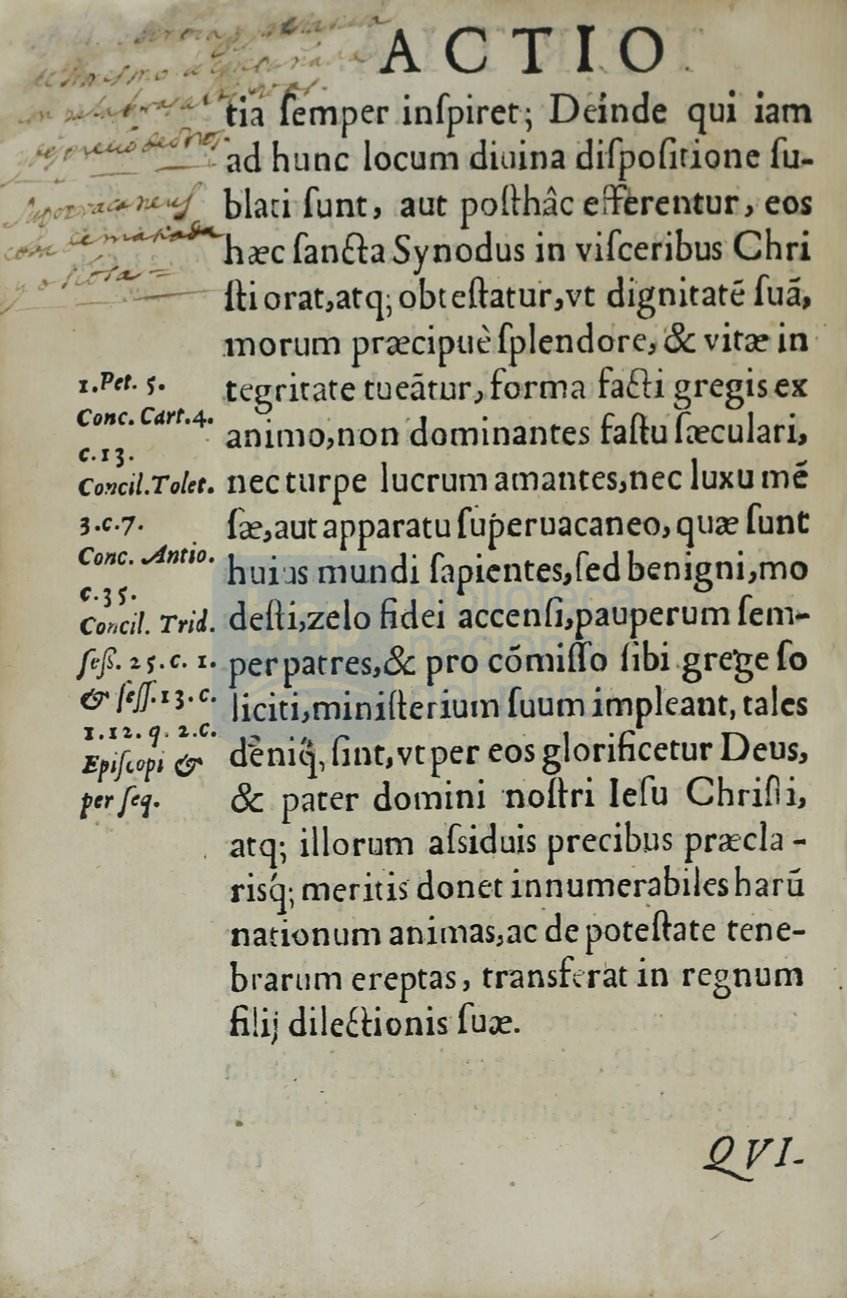 ACTIO
tia ſemper inſpiret; Deinde qui iam
ad hunc locum diuina diſpoſitione ſu-
blati ſunt, aut poſthâc efferentur, eos
hæc ſancta Synodus in viſceribus Chri
ſti orat,atq; obteſtatur,vt dignitatē ſuā,
morum præcipuè ſplendore, & vitæ in
tegritate tueātur, forma facti gregis ex
animo,non dominantes faſtu ſæculari,
nec turpe lucrum amantes,nec luxu mē
ſæ,aut apparatu ſuperuacaneo, quæ ſunt
huius mundi ſapientes,ſed benigni,mo
deſti,zelo fidei accenſi,pauperum ſem-
per patres,& pro cōmiſſo ſibi grege ſo
liciti,miniſterium ſuum impleant, tales
deniq́, ſint,vt per eos glorificetur Deus,
& pater domini noſtri Ieſu Chriſti,
atq; illorum aſsiduis precibus præcla-
risq́; meritis donet innumerabiles harū
nationum animas,ac de poteſtate tene-
brarum ereptas, transferat in regnum
filij dilectionis ſuæ.
1.Pet. 5.
Conc. Cart.4.
c.13.
Concil.Tolet.
3.c.7.
Conc. Antio.
c.35.
Concil. Trid.
ſeſſ. 25.c. 1.
& ſeſſ.13.c.
1.12.q.2.c.
Epiſcopi &
per ſeq.
QVI-